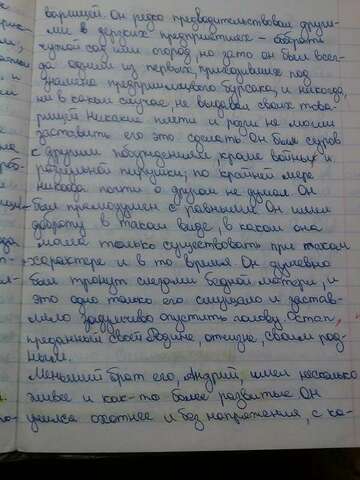 варищей. Он редко предводительствовал други-
ми в дерзких предприятиях - обобрать
чужой сад или огород, но зато он был всег-
да одним из первых, приходивших под
знамена предприимчивого бурсака, и никогда,
ни в каком случае, не выдавал своих това-
рищей. Никакие плети и розги не могли
заставить его это сделать. Он был суров
к другим побуждениям, кроме войны и
разгульной пирушки; по крайней мере
никогда почти о другом не думал. Он
был прямодушен с равными. Он имел
доброту в таком виде, в каком она
могла только существовать при таком
характере и в то время. Он душевно
был тронут слезами бедной матери, и
это одно только его смущало и застав-
ляло задумчиво опустить голову. Остап,
преданный своей Родине, отчизне, своим род-
ным.
Меньший брат его, Андрий, имел несколько
живее и как-то более развитые. Он
учился охотнее и без напряжения, с ка-